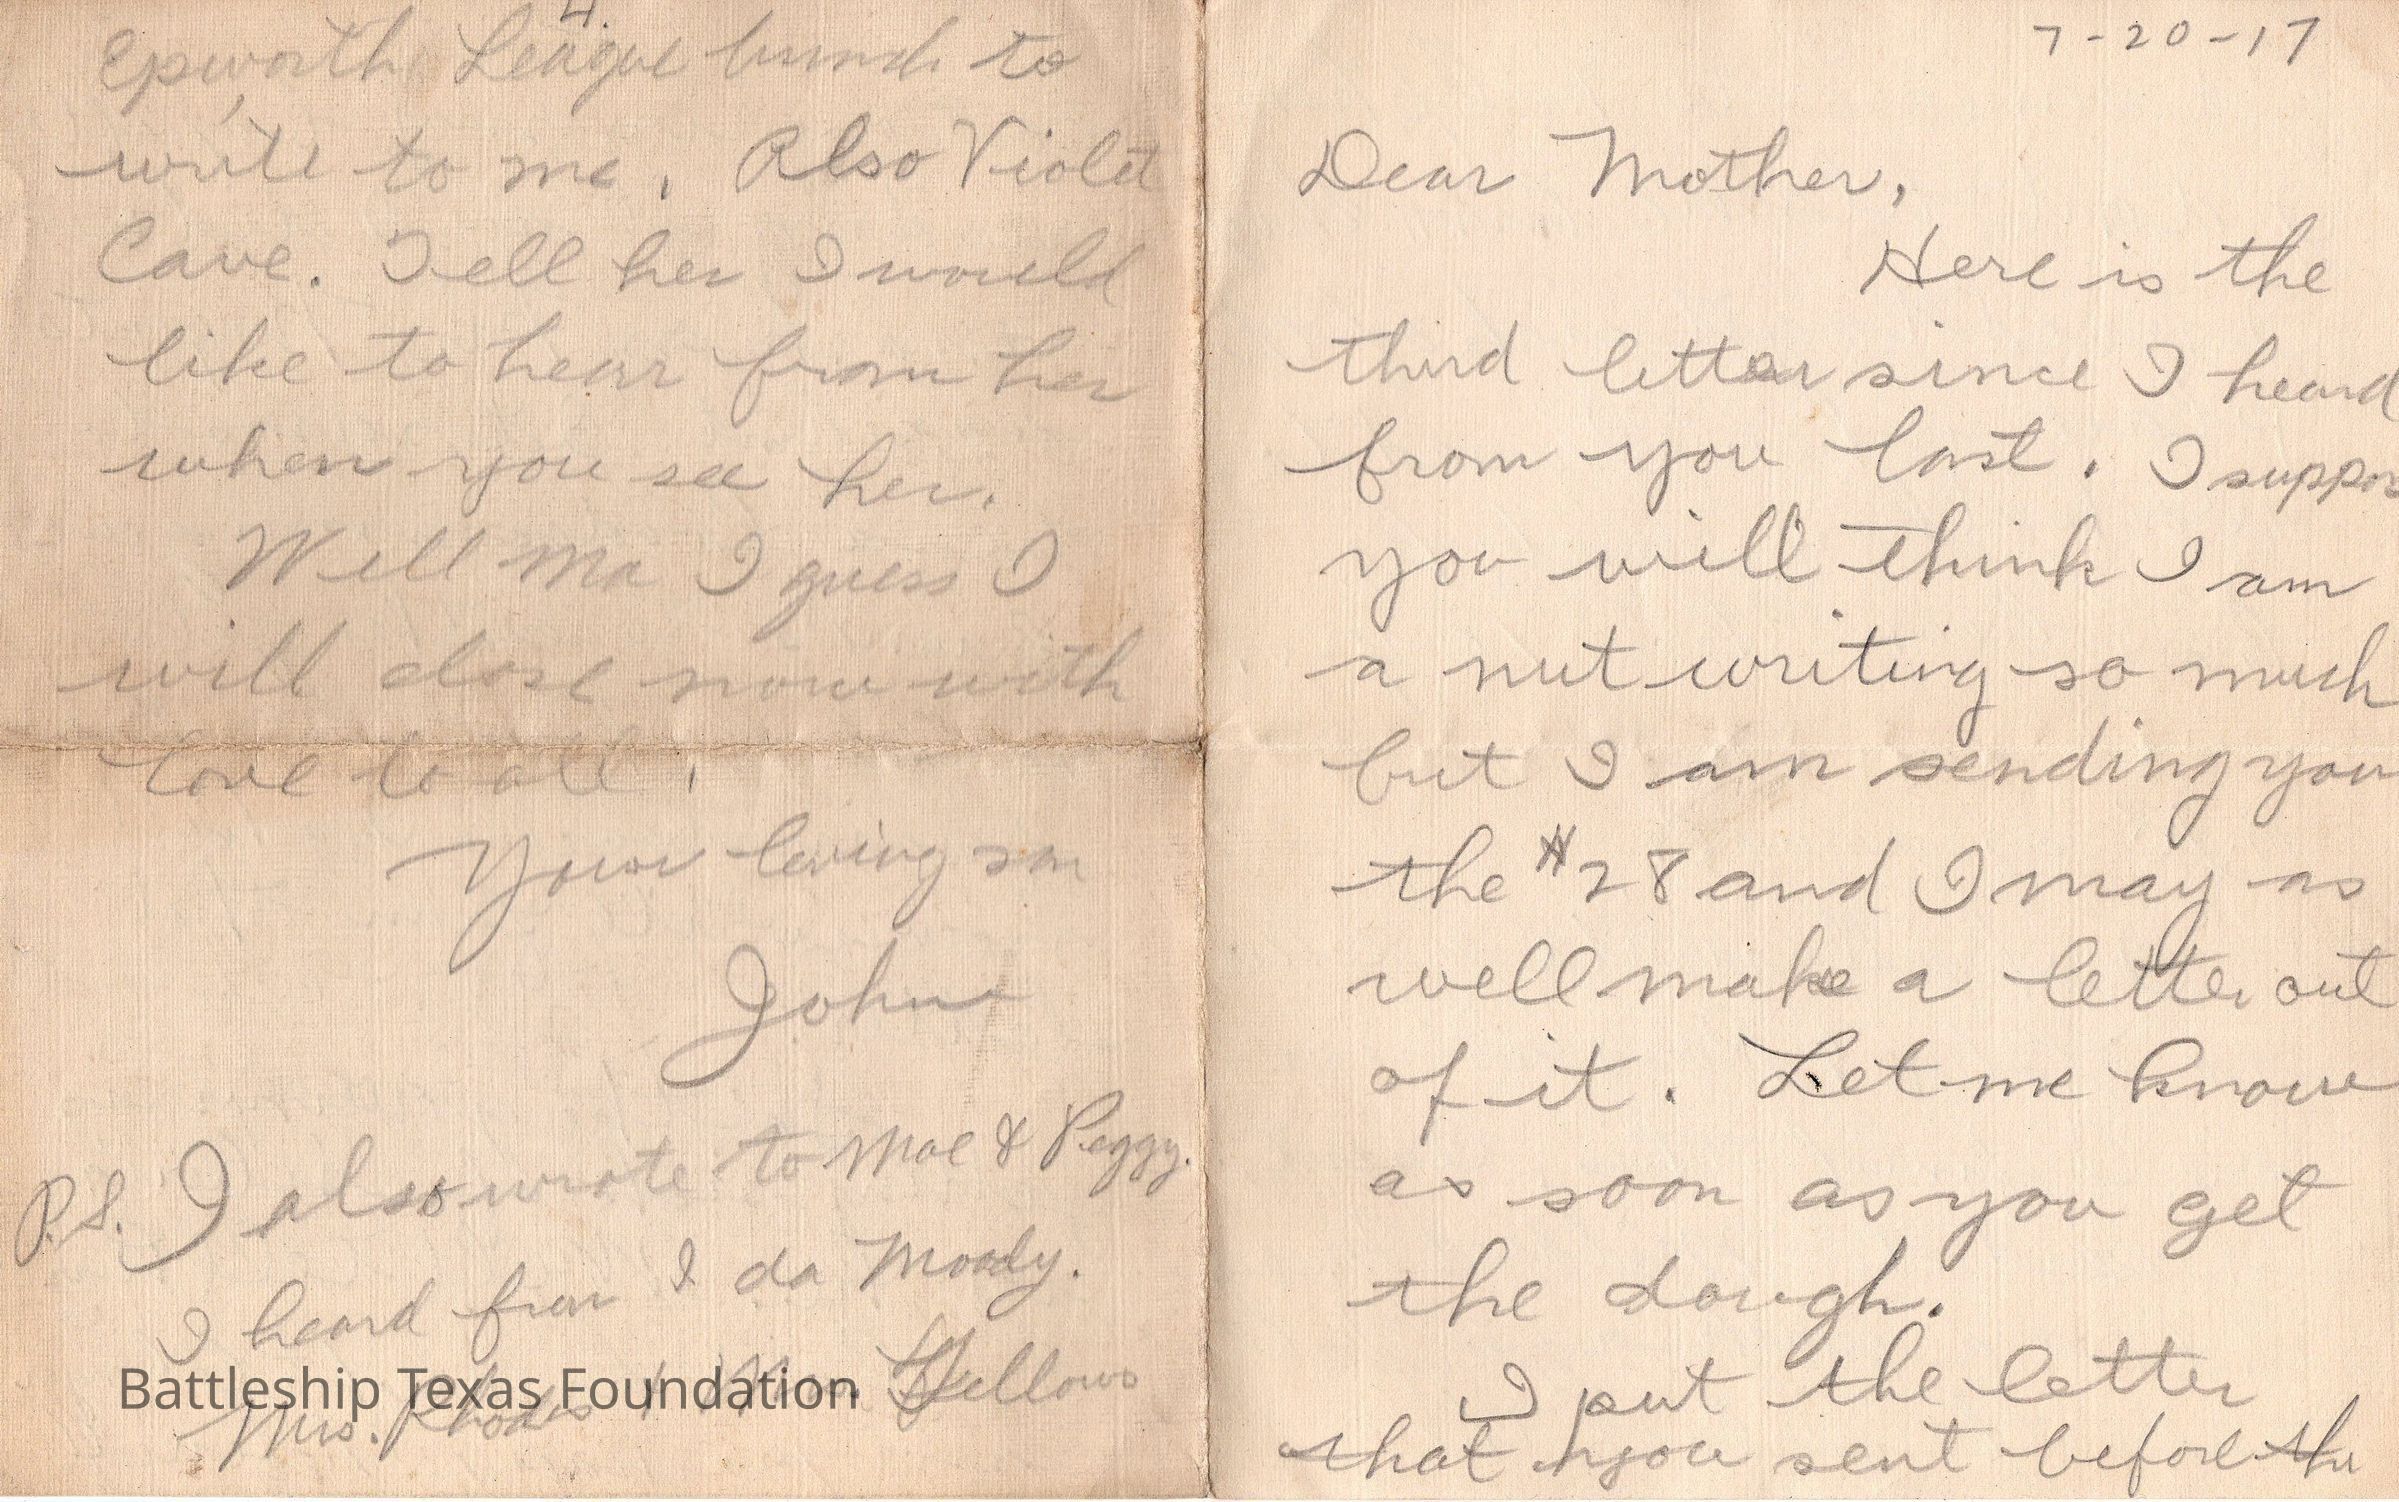 4.
Epworth League bunch to
write to me. Also Violet
Cave. Tell her I would
like to hear from her
when you see her.
Well Ma I guess I
will close now with
love to all.
Your loving son
John
P.S. I also wrote to Mae & Peggy.
I heard from Ida Moody.
Mrs. Rhodes Fellows
Battleship Texas Foundation
7-20-17
Dear Mother,
Here is the
third letter since I heard
from you last. I suppos
you will think I am
a nut writing so much
but I am sending you
the $28 and I may as
well make a letter out
of it. Let me know
as soon as you get
the dough.
I put the letter
that you sent before the